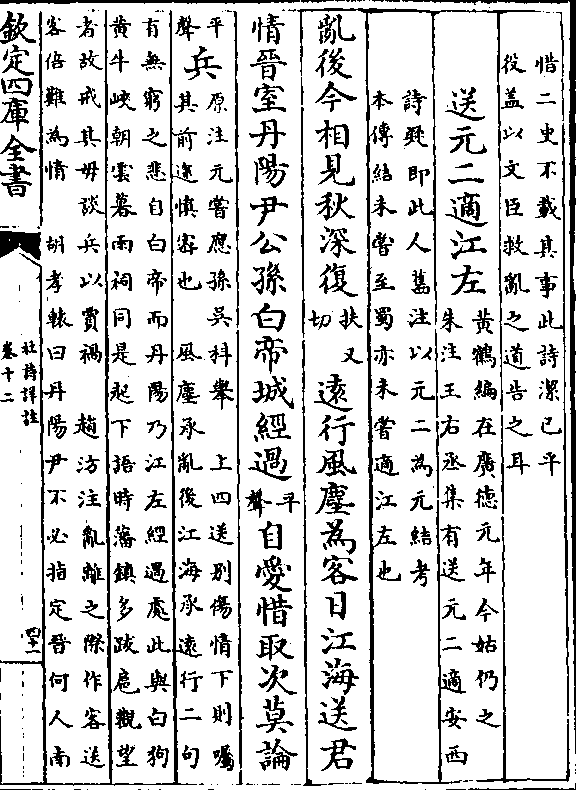 惜二史不載其事此詩潔已平
役蓋以文臣救亂之道告之耳
送元二適江左
黃鶴編在廣德元年今姑仍之
朱注王右丞集有送元二適安西
詩疑即此人舊注以元二為元結考
本傳結未嘗至蜀亦未嘗適江左也
亂後今相見秋深復
扶又
切
遠行風塵為客日江海送君
情晉室丹陽尹公孫白帝城經過
平
聲
自愛惜取次莫論
平
聲
兵
原注元嘗應孫吳科舉
上四送别傷情下則囑
其前途慎密也
風塵承亂後江海承遠行二句
有無窮之悲自白帝而丹陽乃江左經過處此與白狗
黃牛峽朝雲暮雨祠同是起下語時藩鎮多跋扈觀望
者故戒其毋談兵以賈禍
趙汸注亂離之際作客送
客倍難為情
胡孝轅曰丹陽尹不必指定晉何人南
欽定四庫全書
杜詩詳註
卷十二